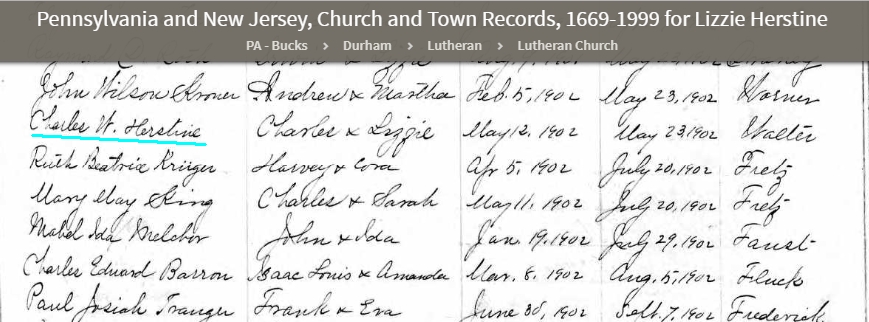 Pennsylvania and New Jersey, Church and Town Records, 1669-1999 for Lizzie Herstine
PA - Bucks > Durham > Lutheran > Lutheran Church
John Wilson Kroner Andrew & Martha Feb. 5, 1902 May 23, 1902 Warner
Charles W. Herstine Charles & Lizzie May 12, 1902 May 23, 1902 Walter
Ruth Beatrice Krüger Harvey & Cora Apr 5, 1902 July 20, 1902 Fretz
Mary May King Charles & Sarah May 11, 1902 July 20, 1902 Fretz
Mabel Ida Melchor John & Ida Jan 19, 1902 July 29, 1902 Faust
Charles Edward Barron Isaac Louis & Amanda Mar. 8, 1902 Aug. 5, 1902 Fluck
Paul Josiah Tranger Frank & Eva June 30, 1902 Sept. 7, 1902 Frederick